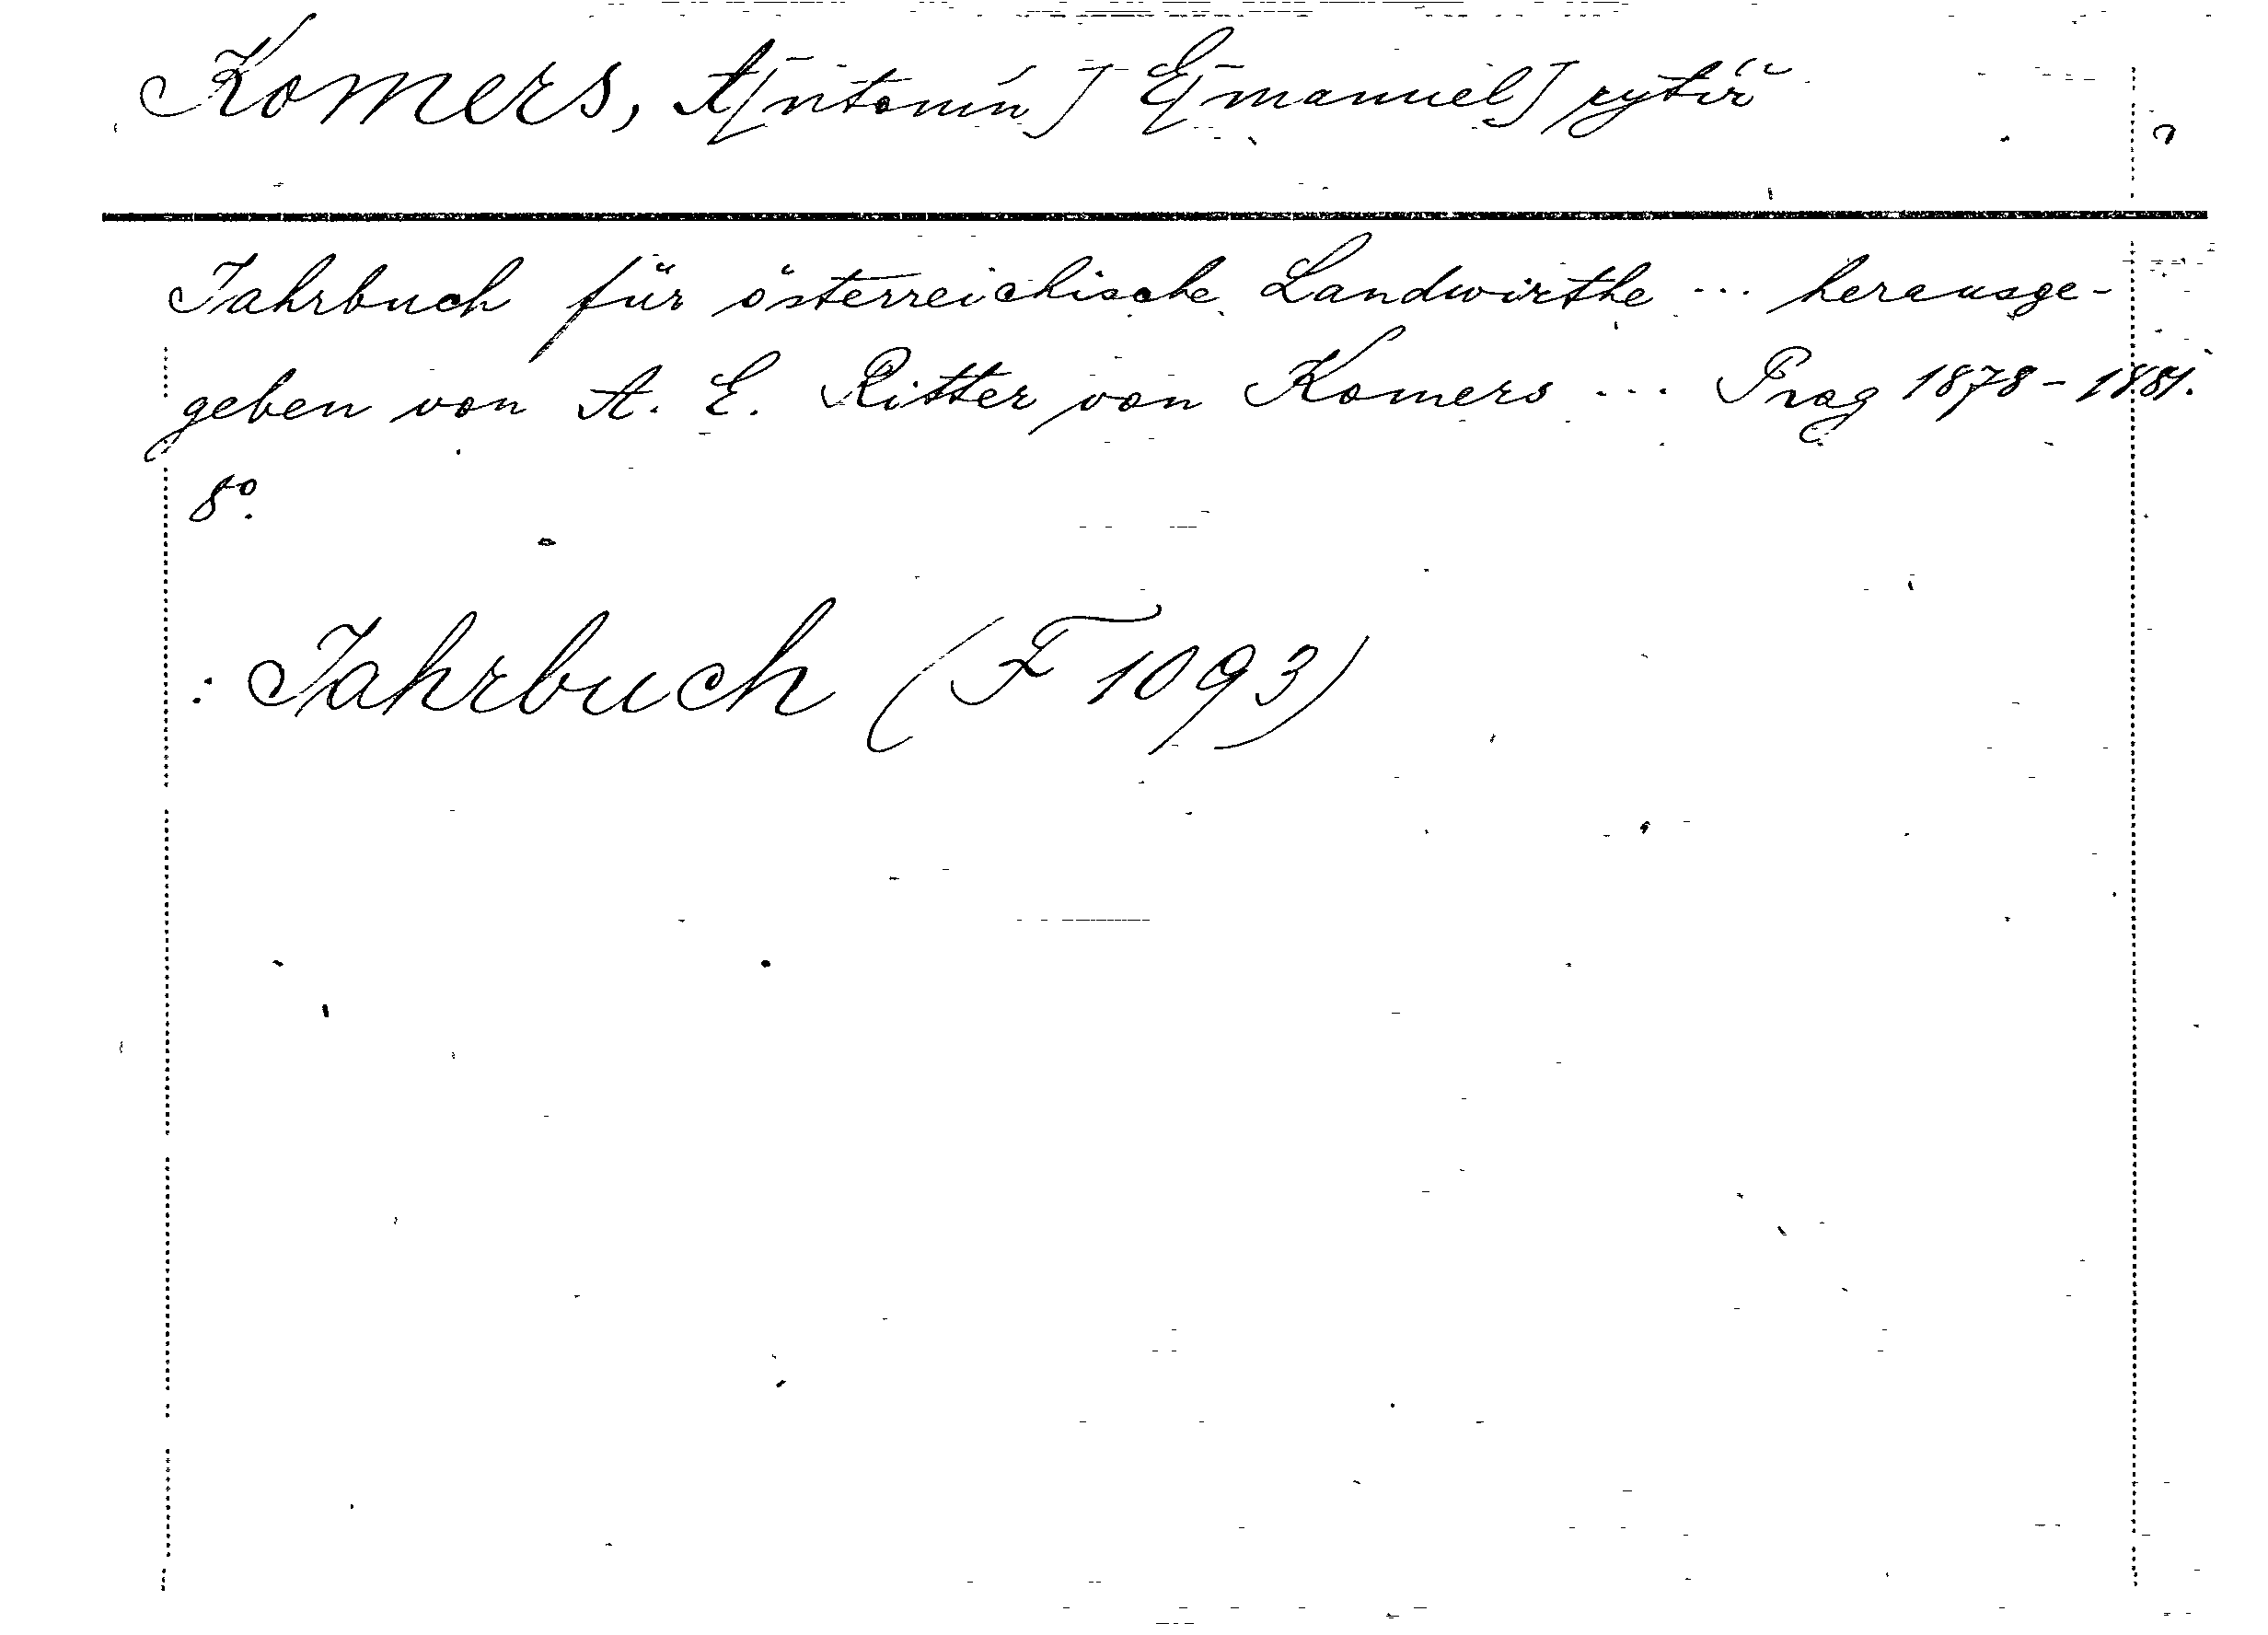 Komers, A[ntonín] E[manuel] rytíř
Jahrbuch für österreichische Landwirthe ... herausge-
geben von A. E. Ritter von Komers ... Prag 1878-1881.
8°.
: Jahrbuch (F 1093)